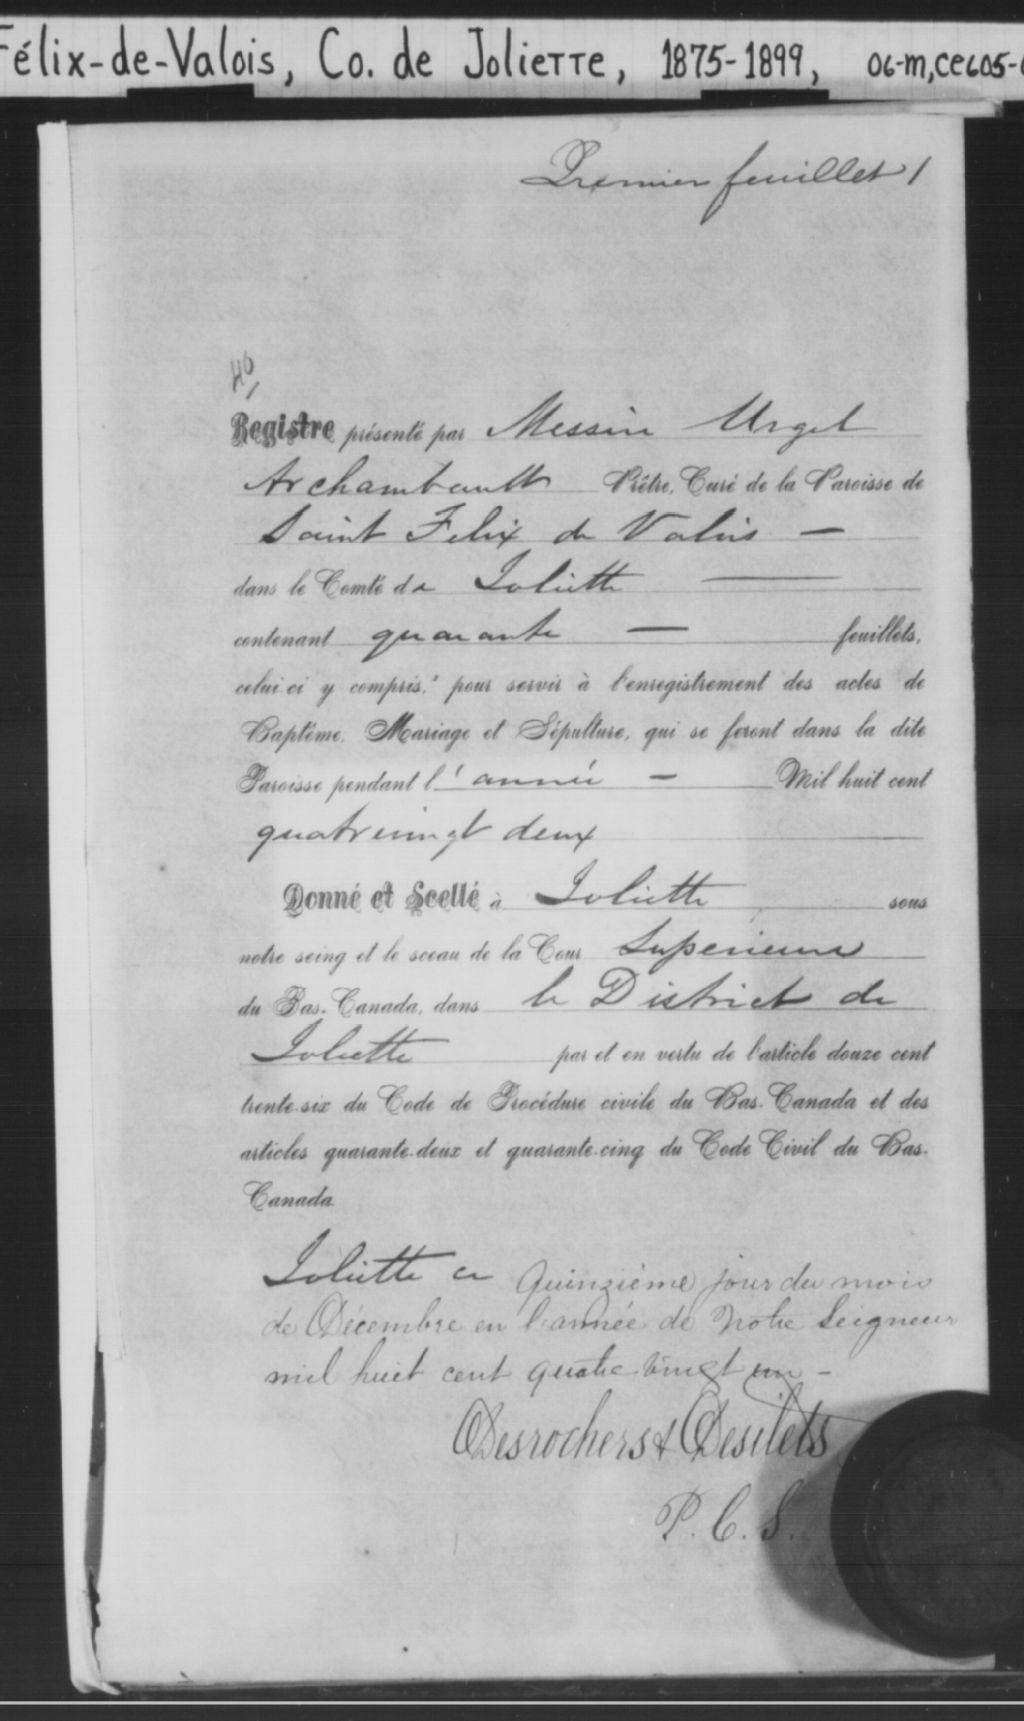 Félix-de-Valois, Co. de Joliette, 1875-1899, 06-m,ce605-
Premier feuillet 1
40
Registre présenté par Messire Urgel
Archambault Prêtre, Curé de la Paroisse de
Saint Felix de Valois —
dans le Comté de Joliette —
contenant quarante — feuillets,
celui-ci y compris, pour servir à l'enregistrement des actes de
Baptême, Mariage et Sépulture, qui se feront dans la dite
Paroisse pendant l'année — Mil huit cent
quatrevingt deux
Donné et Scellé à Joliette sous
notre seing et le sceau de la Cour Superieure
du Bas-Canada, dans le District de
Joliette par et en vertu de l'article douze cent
trente-six du Code de Procédure civile du Bas-Canada et des
articles quarante-deux et quarante-cinq du Code Civil du Bas-
Canada
Joliette ce Quinzième jour du mois
de Décembre en l'année de Notre Seigneur
mil huit cent quatre vingt un –
Desrochers & Desilets
P. C. S.